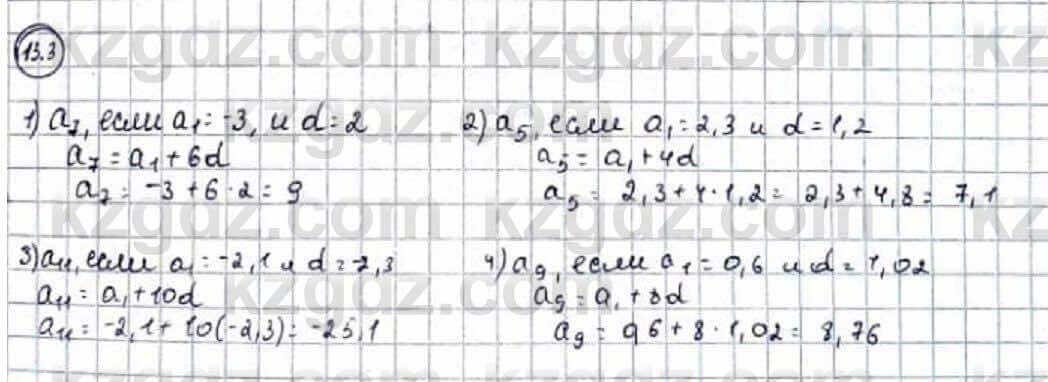 13.3
1) a₇, если a₁=-3, и d=2
a₇=a₁+6d
a₇=-3+6·2=9
2) a₅, если a₁=2,3 и d=1,2
a₅=a₁+4d
a₅=2,3+4·1,2=2,3+4,8=7,1
3) a₁₁, если a₁=-2,1 и d=-2,3
a₁₁=a₁+10d
a₁₁=-2,1+10(-2,3)=-25,1
4) a₉, если a₁=0,6 и d=1,02
a₉=a₁+8d
a₉=0,6+8·1,02=8,76
kzgdz.com